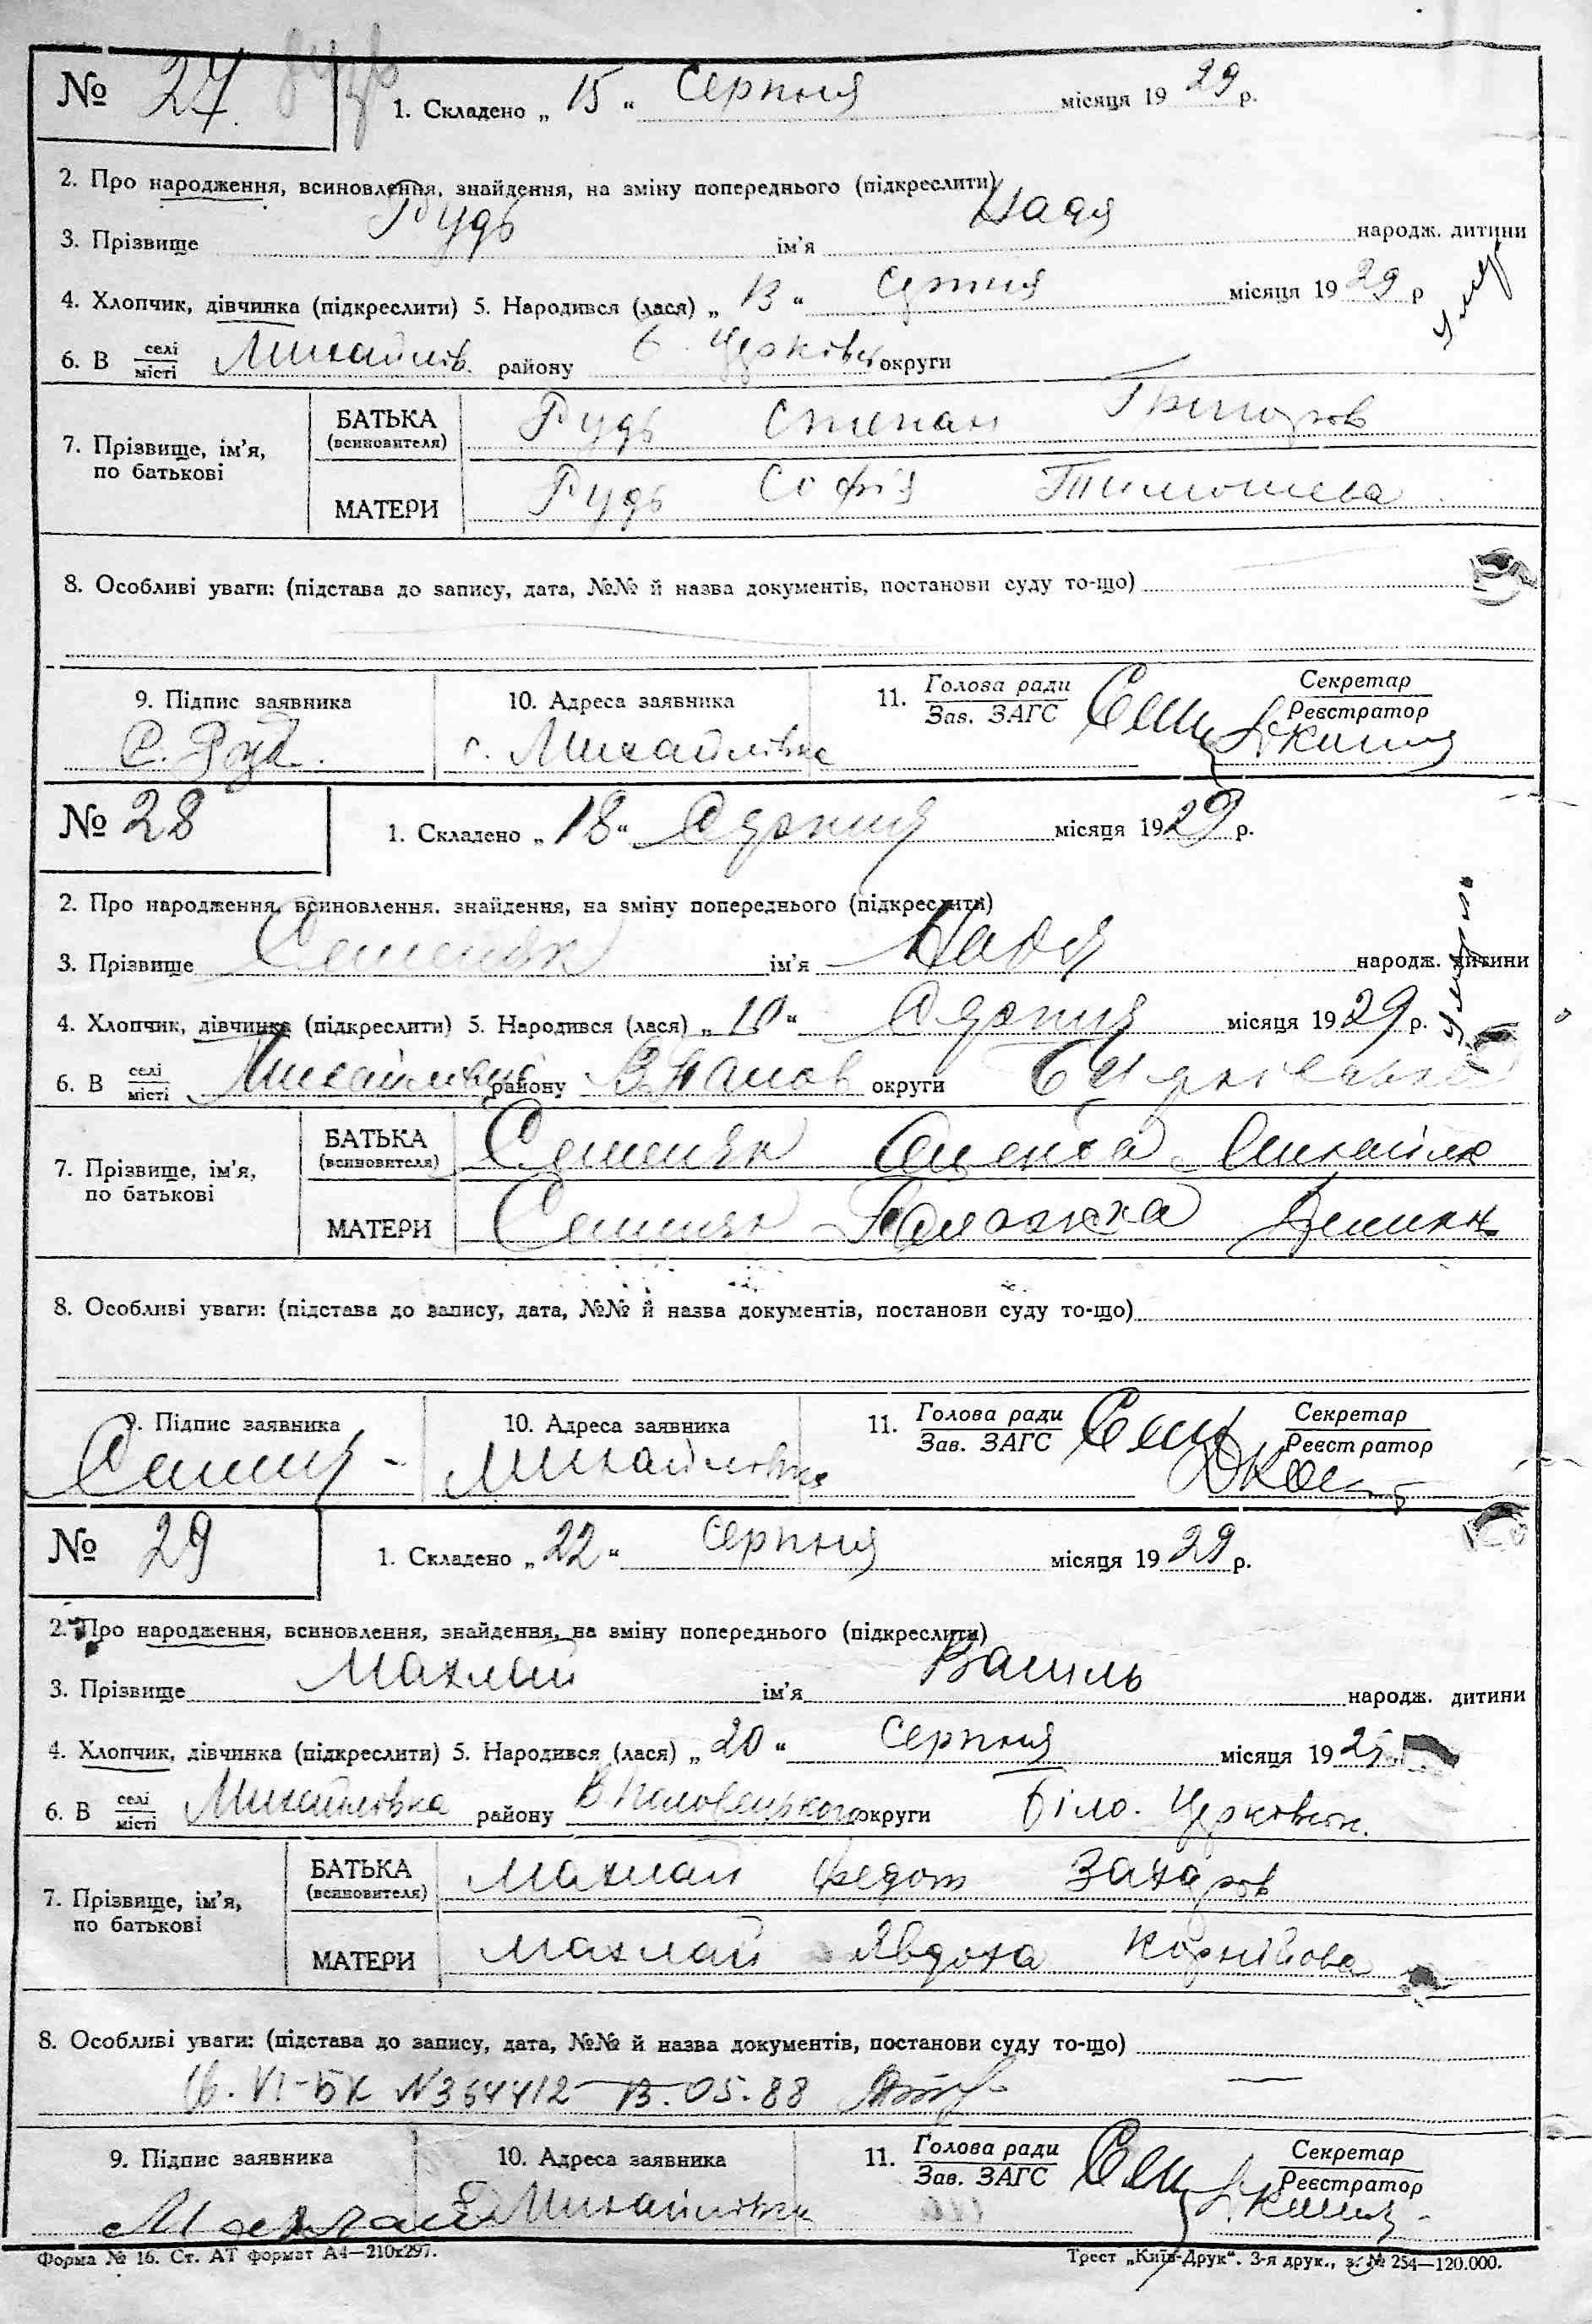 № 27. 1. Складено „ 15 “ Серпня місяця 19 29 р.
2. Про народження, всиновлення, знайдення, на зміну попереднього (підкреслити)
3. Прізвище Рудь ім'я Надя народж. дитини
4. Хлопчик, дівчинка (підкреслити) 5. Народився (лася) „ 13 “ місяця 19 29 р
6. В селі місті Михайлів. району Б. Церківс округи
7. Прізвище, ім'я, по батькові БАТЬКА (всиновителя) Рудь Степан Григоров
МАТЕРИ Рудь Софія Тимошева
8. Особливі уваги: (підстава до запису, дата, №№ й назва документів, постанови суду то-що)
9. Підпис заявника 10. Адреса заявника 11. Голова ради Зав. ЗАГС Секретар Реєстратор
С. Руд. с. Михайлівка
№ 28 1. Складено „ 18 “ Серпня місяця 19 29 р.
2. Про народження, всиновлення, знайдення, на зміну попереднього (підкреслити)
3. Прізвище Семеняк ім'я Надя народж. дитини
4. Хлопчик, дівчинка (підкреслити) 5. Народився (лася) „ 10 “ Серпня місяця 19 29 р.
6. В селі місті Михайлівка району округи
7. Прізвище, ім'я, по батькові БАТЬКА (всиновителя) Семеняк
МАТЕРИ Семеняк
8. Особливі уваги: (підстава до запису, дата, №№ й назва документів, постанови суду то-що)
9. Підпис заявника 10. Адреса заявника 11. Голова ради Зав. ЗАГС Секретар Реєстратор
Михайлівка
№ 29 1. Складено „ 22 “ Серпня місяця 19 29 р.
2. Про народження, всиновлення, знайдення, на зміну попереднього (підкреслити)
3. Прізвище Махлай ім'я Василь народж. дитини
4. Хлопчик, дівчинка (підкреслити) 5. Народився (лася) „ 20 “ Серпня місяця 19 29
6. В селі місті Михайлівка району В. Половецького округи Біло. Церковськ.
7. Прізвище, ім'я, по батькові БАТЬКА (всиновителя) Махлай Федот Захаров
МАТЕРИ Махлай Явдоха Корнійова
8. Особливі уваги: (підстава до запису, дата, №№ й назва документів, постанови суду то-що)
VI-БК N 364412 13.05.88
9. Підпис заявника 10. Адреса заявника 11. Голова ради Зав. ЗАГС Секретар Реєстратор
Махлай Михайлівка
Форма № 16. Ст. АТ формат А4—210х297. Трест „Київ-Друк“. 3-я друк., з. № 254—120.000.